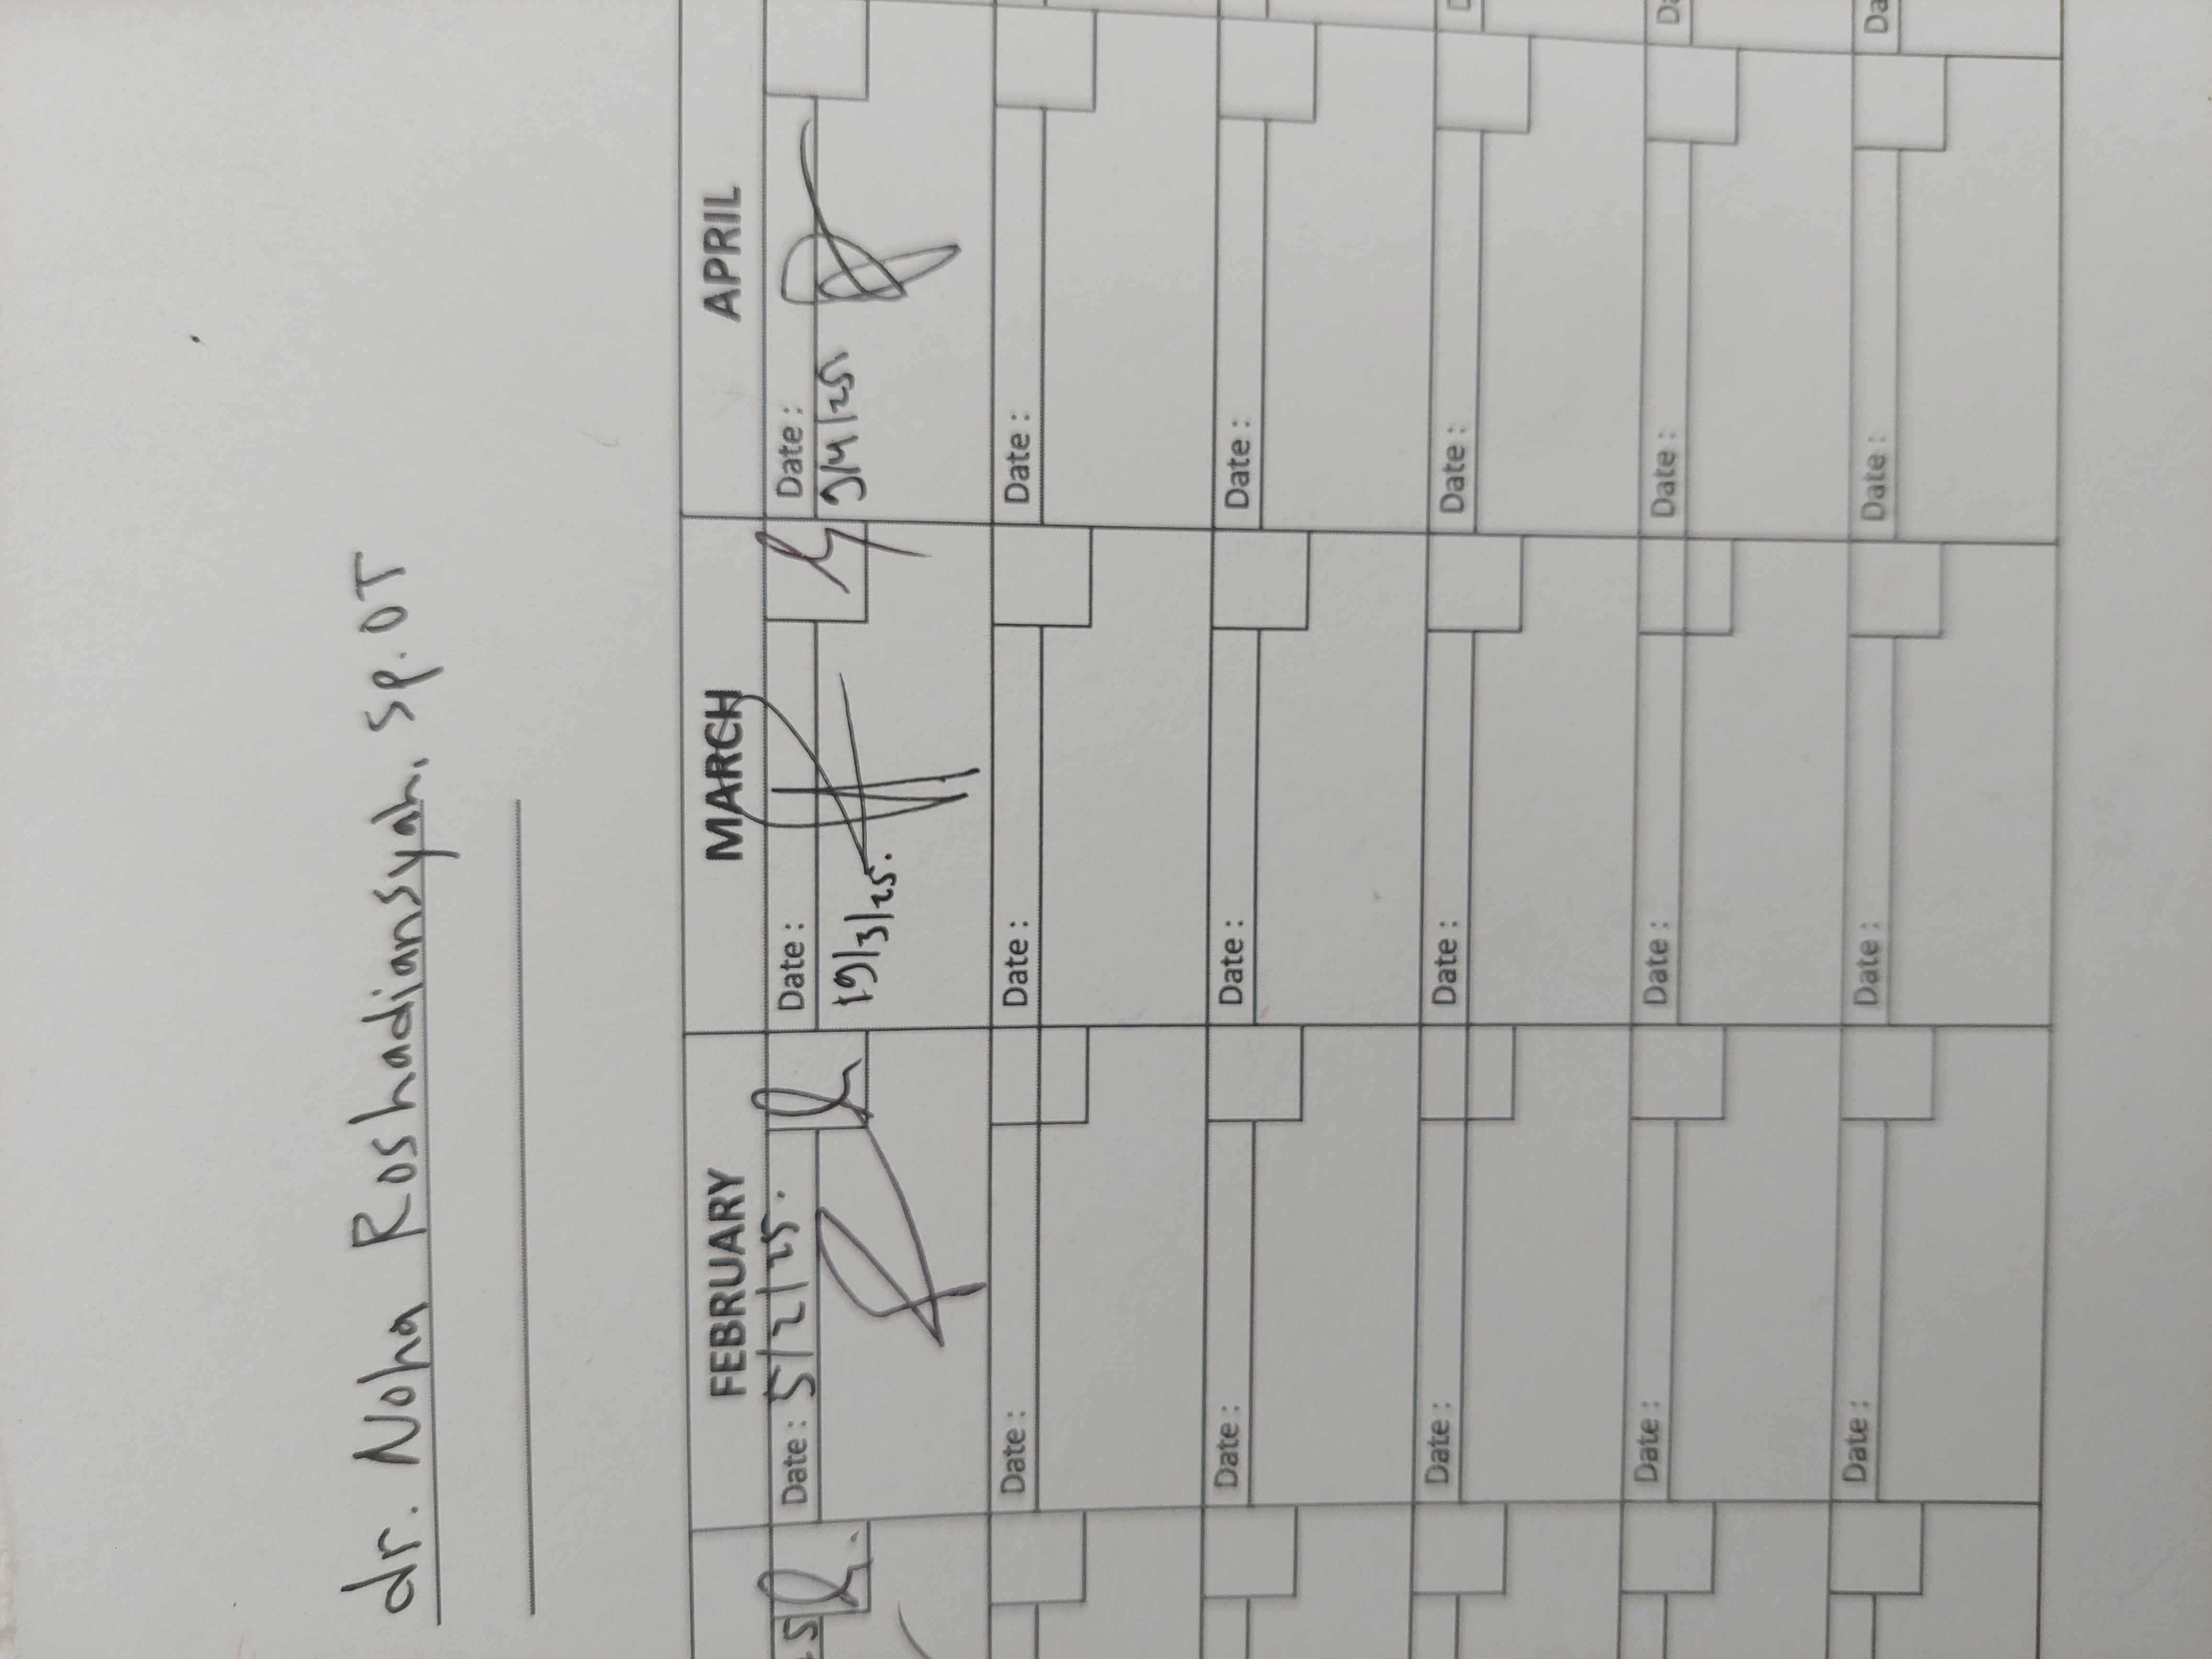 dr. Noha Roshadiansyah. Sp.OT
FEBRUARY MARCH APRIL
Date : 5/2/25. Date : Date :
19/3/25. 9/4/25.
Date : Date : Date :
Date : Date : Date :
Date : Date : Date :
Date : Date : Date :
Date : Date : Date :